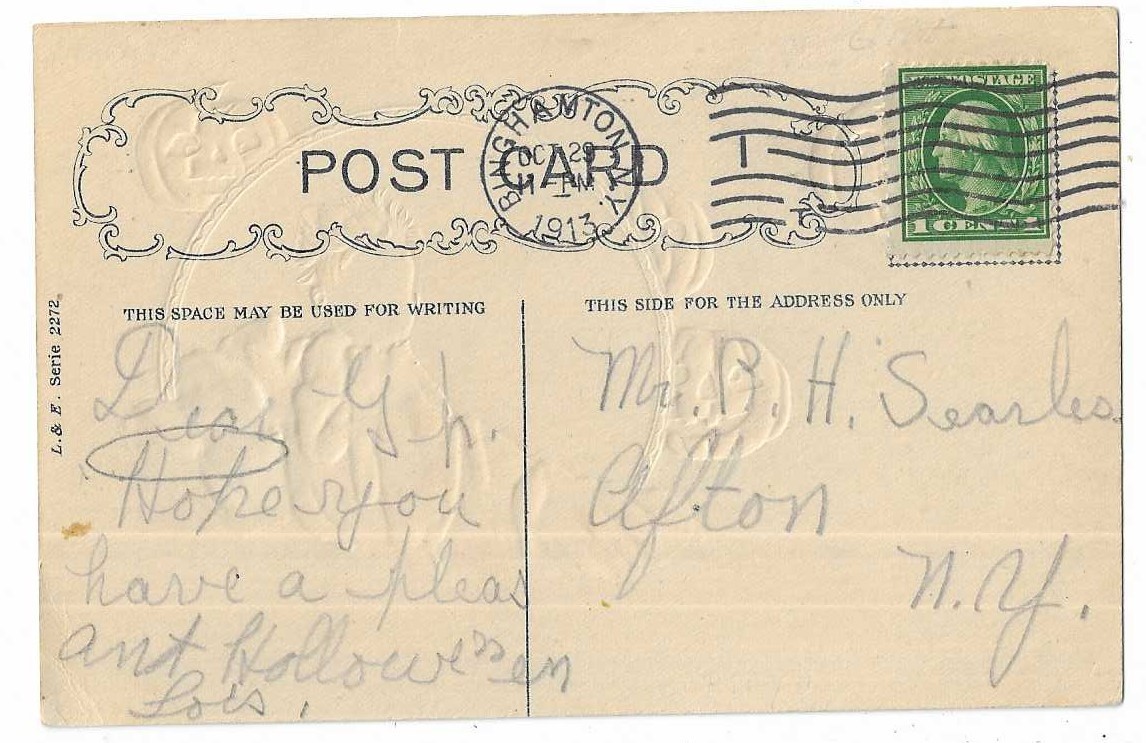 POST CARD
BINGHAMTON, N.Y.
OCT 29
11 PM
1913
1
POSTAGE
1 CENT 1
L. & E. Serie 2272
THIS SPACE MAY BE USED FOR WRITING
Dear G p.
Hope you
have a pleas
ant Hollowe"en
Lois.
THIS SIDE FOR THE ADDRESS ONLY
Mr. R. H. Searles
Afton
N.Y.